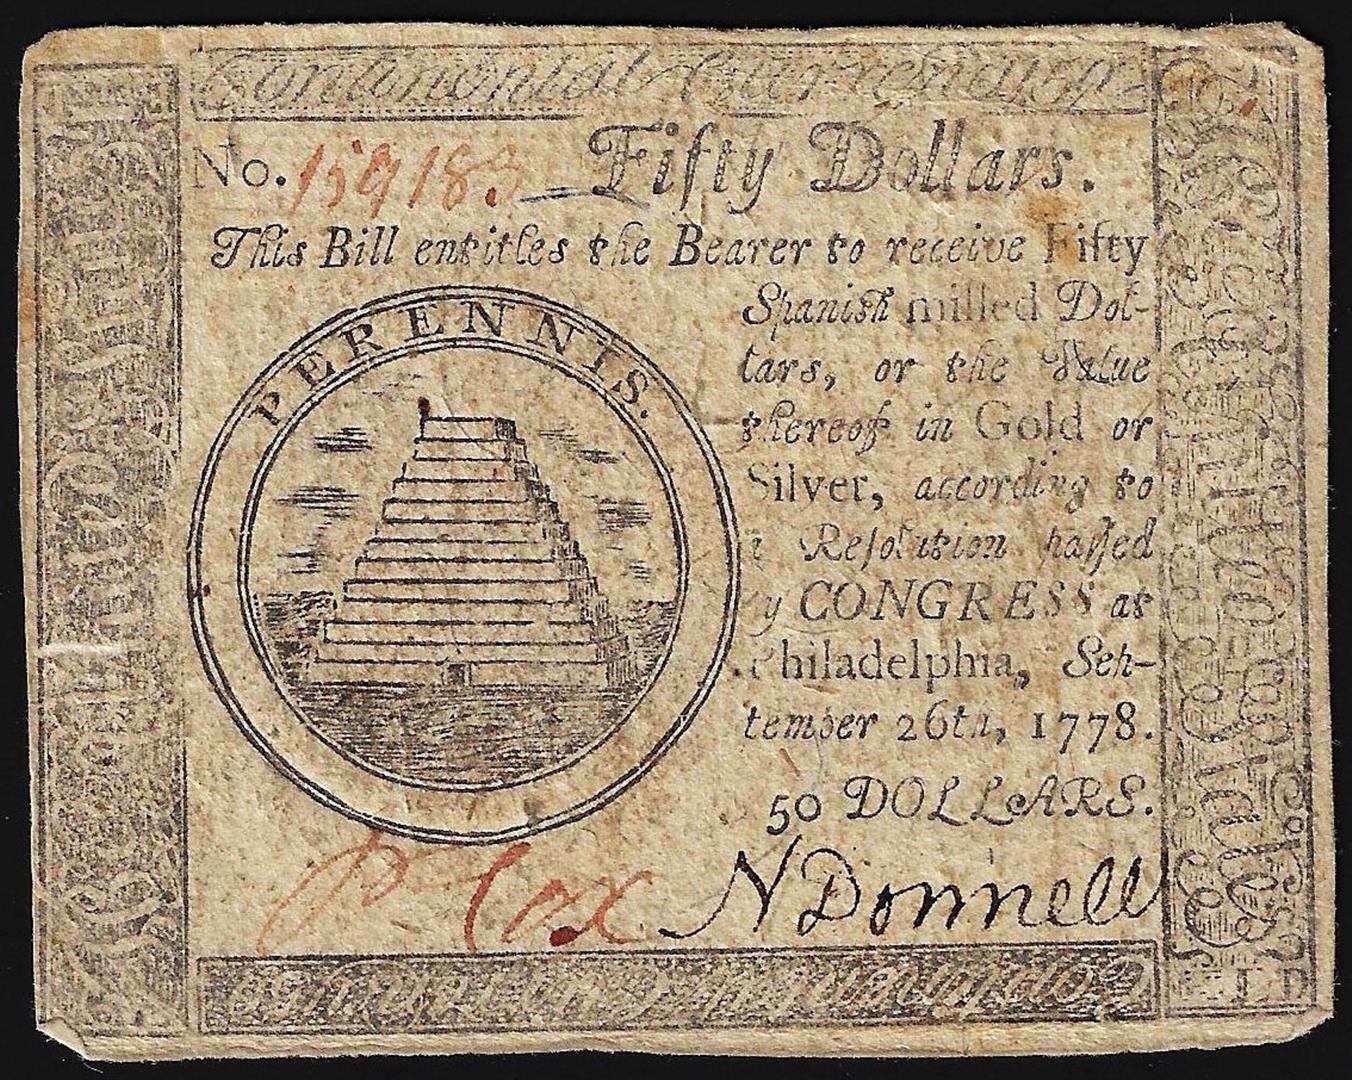 Continental Currency
No. 159183 Fifty Dollars.
This Bill entitles the Bearer to receive Fifty
Spanish milled Dol-
lars, or the Value
thereof in Gold or
Silver, according to
a Resolution passed
by CONGRESS at
Philadelphia, Sep-
tember 26th, 1778.
50 DOLLARS.
PERENNIS.
P. Cox
N Donnell